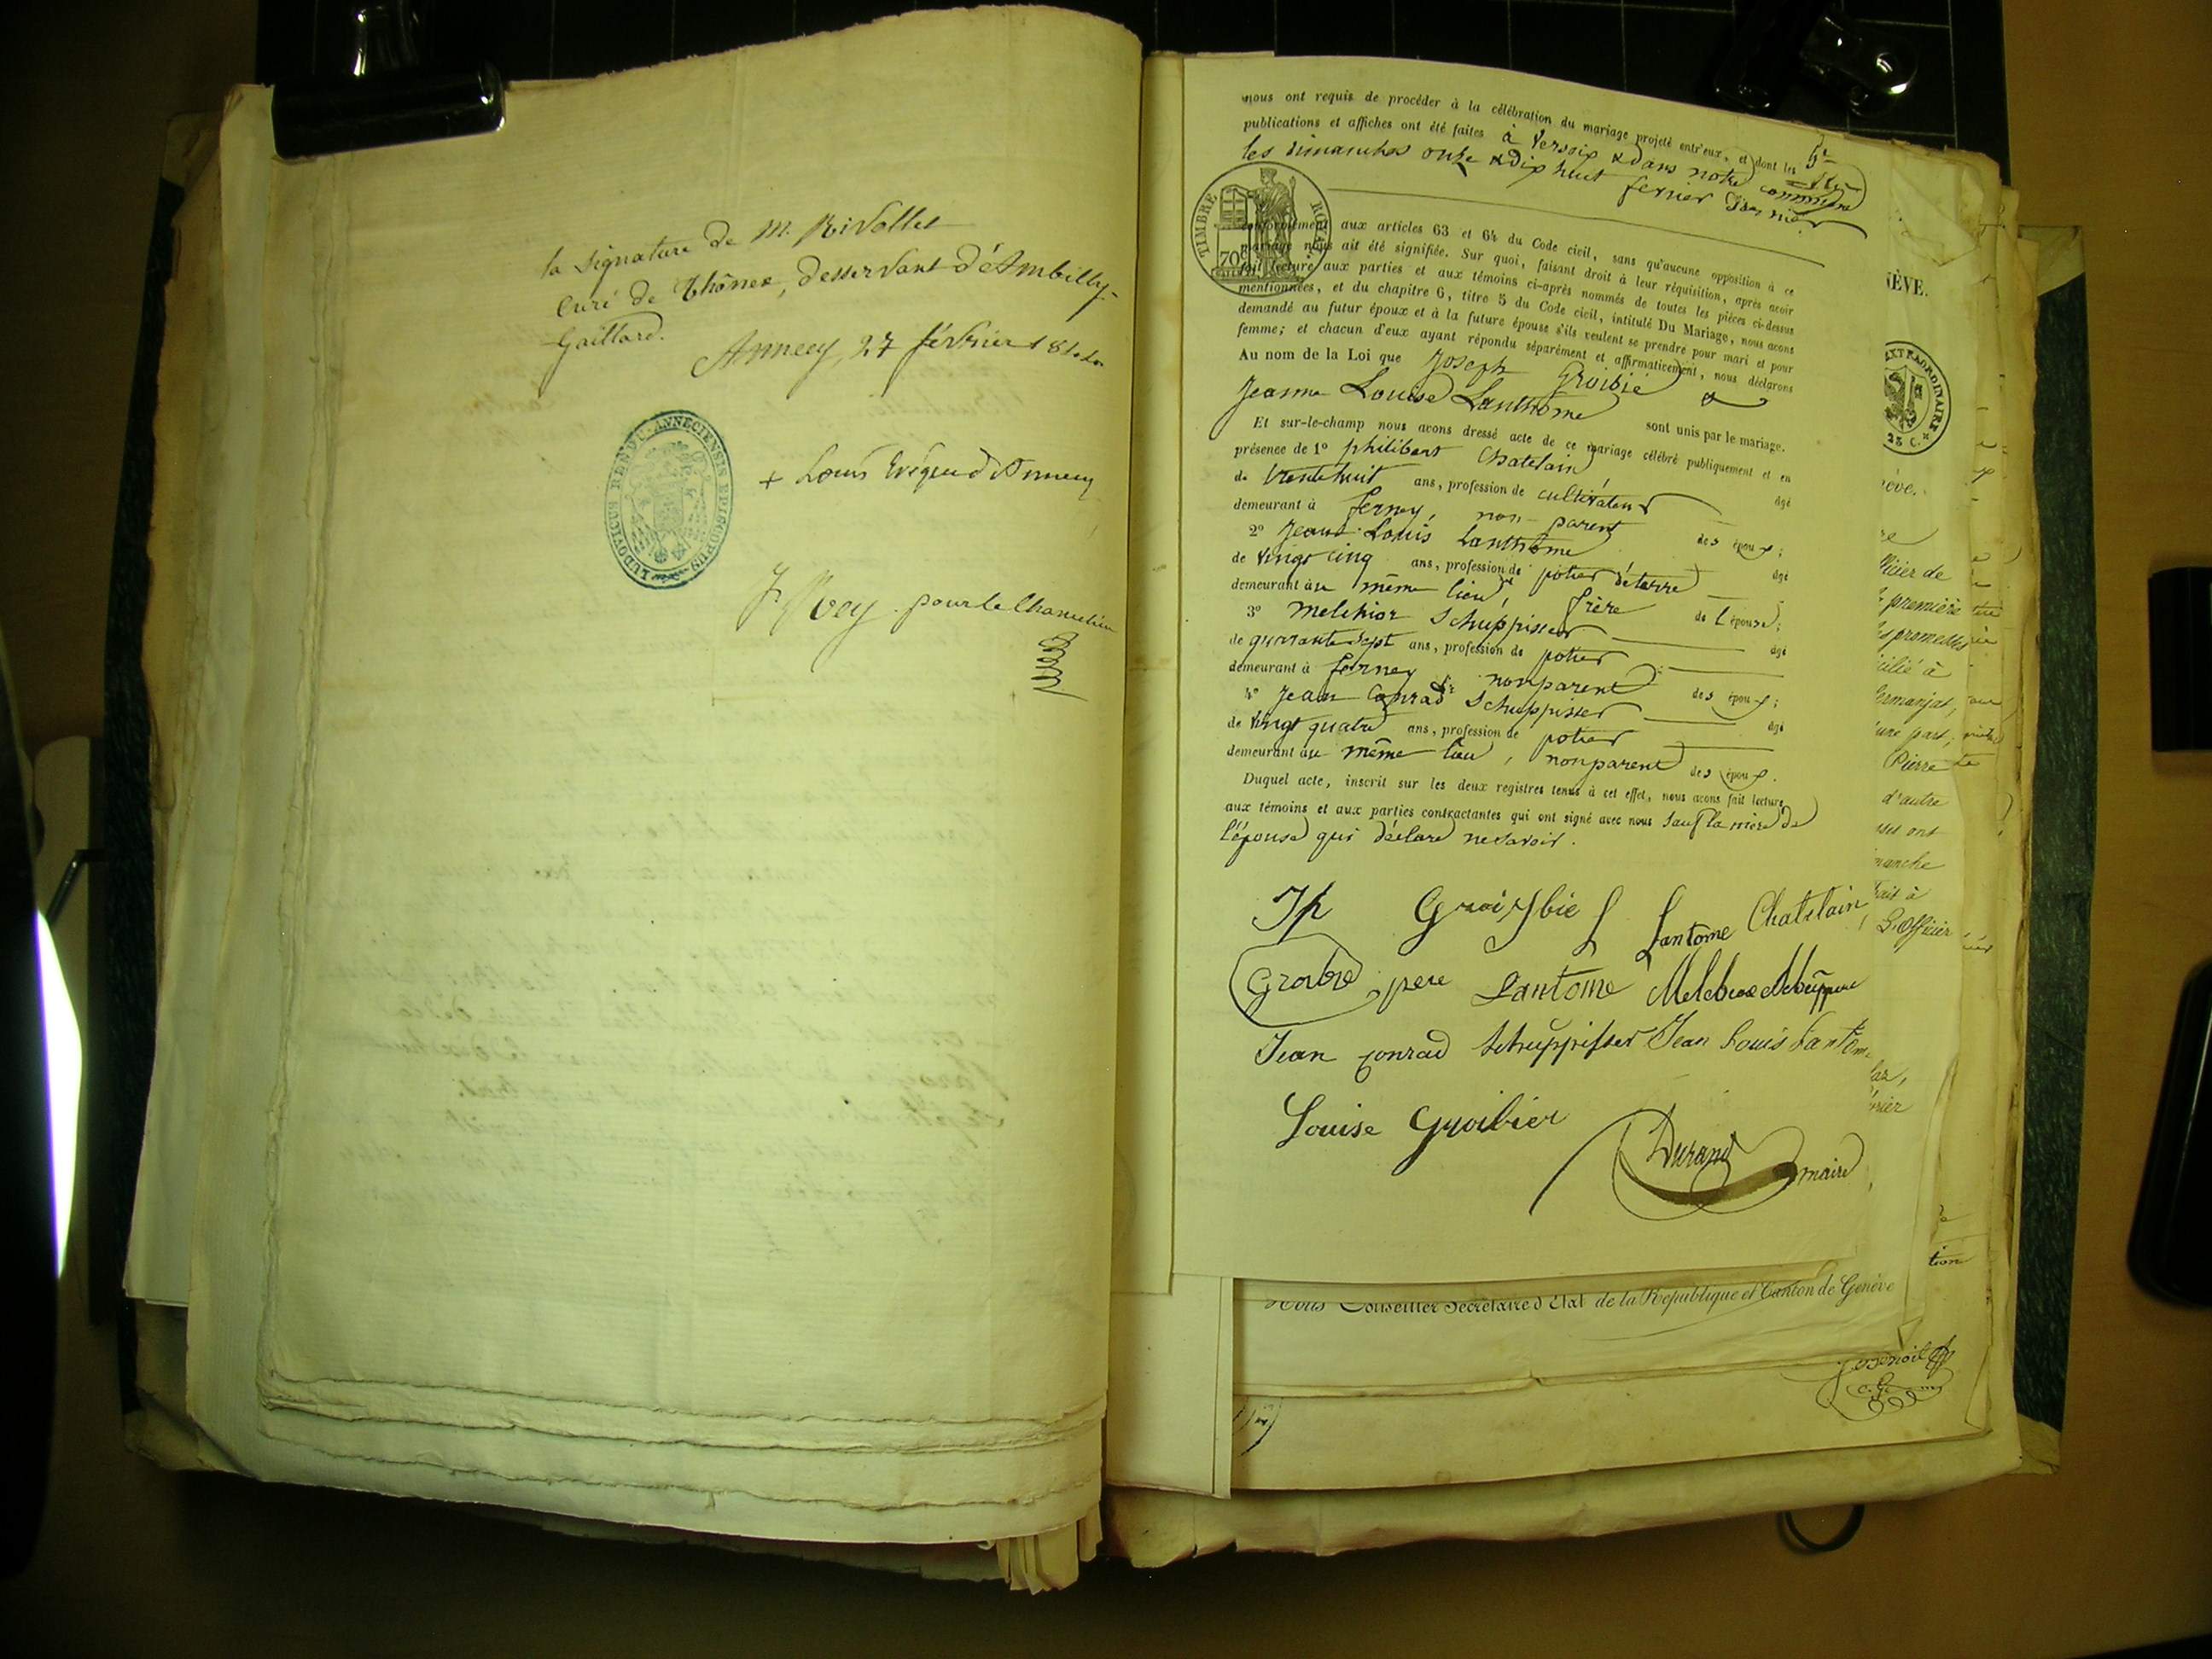 la Signature de M. Rivollet
Curé de Thônex, desservant d'Ambilly-
Gaillard.
Annecy, 27 février 1844
LUDOVICUS RENDU ANNECIENSIS EPISCOPUS
+ Louis Evêque d'Annecy
pour le Chancelier
nous ont requis de procéder à la célébration du mariage projeté entr'eux, et dont les
publications et affiches ont été faites à Versoix & dans notre commune
les dimanches onze & dix huit fevrier dernier
TIMBRE ROYAL
70c
conformément aux articles 63 et 64 du Code civil, sans qu'aucune opposition à ce
mariage nous ait été signifiée. Sur quoi, faisant droit à leur réquisition, après avoir
fait lecture aux parties et aux témoins ci-après nommés de toutes les pièces ci-dessus
mentionnées, et du chapitre 6, titre 5 du Code civil, intitulé Du Mariage, nous avons
demandé au futur époux et à la future épouse s'ils veulent se prendre pour mari et pour
femme; et chacun d'eux ayant répondu séparément et affirmativement, nous déclarons
Au nom de la Loi que Joseph Groibié &
Jeanne Louise Lanthôme sont unis par le mariage.
Et sur-le-champ nous avons dressé acte de ce mariage célébré publiquement et en
présence de 1° philibert Chatelain agé
de trente huit ans, profession de cultivateur
demeurant à ferney, non parent des époux;
2° Jean Louis Lanthôme agé
de vingt cinq ans, profession de potier de terre
demeurant au même lieu, frère de l'épouse;
3° Melchior Schuppisser agé
de quarante sept ans, profession de potier
demeurant à ferney non parent des époux;
4° Jean Conrad Schuppisser agé
de vingt quatre ans, profession de potier
demeurant au même lieu, non parent des époux.
Duquel acte, inscrit sur les deux registres tenus à cet effet, nous avons fait lecture
aux témoins et aux parties contractantes qui ont signé avec nous sauf la mère de
l'épouse qui déclare ne savoir.
Jh Groisbie L Lantome Chatelain
Groibie pere Lantome
Jean Conrad Schuppisser Jean Louis Lantome
Louise Groibier
Durand maire
NÈVE.
EXTRAORDINAIRE
25 C.
première
promesses
Pierre
d'autre
ont
L'Officier
tion
Nous Conseiller Secrétaire d'État de la République et Canton de Genève